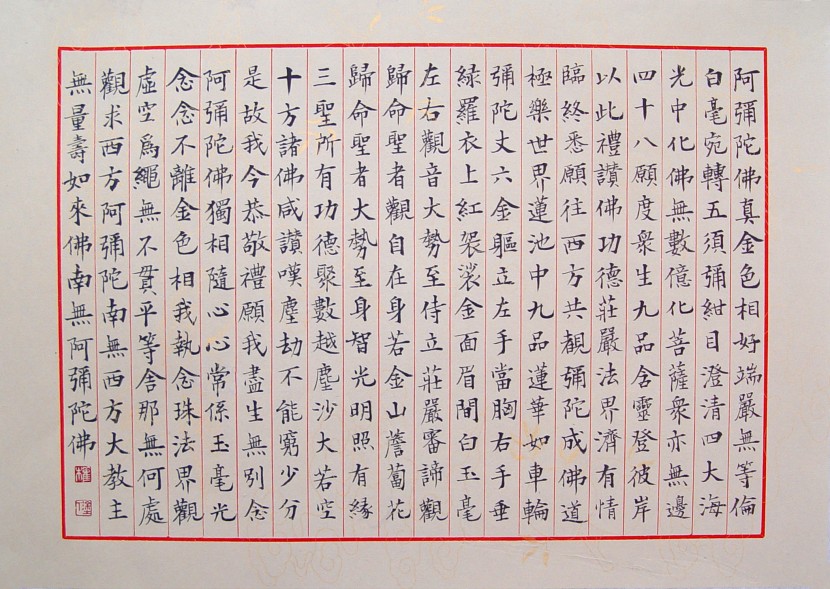 阿彌陀佛真金色相好端嚴無等倫
白毫宛轉五須彌紺目澄清四大海
光中化佛無數億化菩薩衆亦無邊
四十八願度衆生九品含靈登彼岸
以此禮讚佛功德莊嚴法界濟有情
臨終悉願往西方共覩彌陀成佛道
極樂世界蓮池中九品蓮華如車輪
彌陀丈六金軀立左手當胸右手垂
緑羅衣上紅袈裟金面眉間白玉毫
左右觀音大勢至侍立莊嚴審諦觀
歸命聖者觀自在身若金山薝蔔花
歸命聖者大勢至身智光明照有緣
三聖所有功德聚數越塵沙大若空
十方諸佛咸讚嘆塵劫不能窮少分
是故我今恭敬禮願我盡生無別念
阿彌陀佛獨相隨心心常係玉毫光
念念不離金色相我執念珠法界觀
虛空爲繩無不貫平等舍那無何處
觀求西方阿彌陀南無西方大教主
無量壽如來佛南無阿彌陀佛